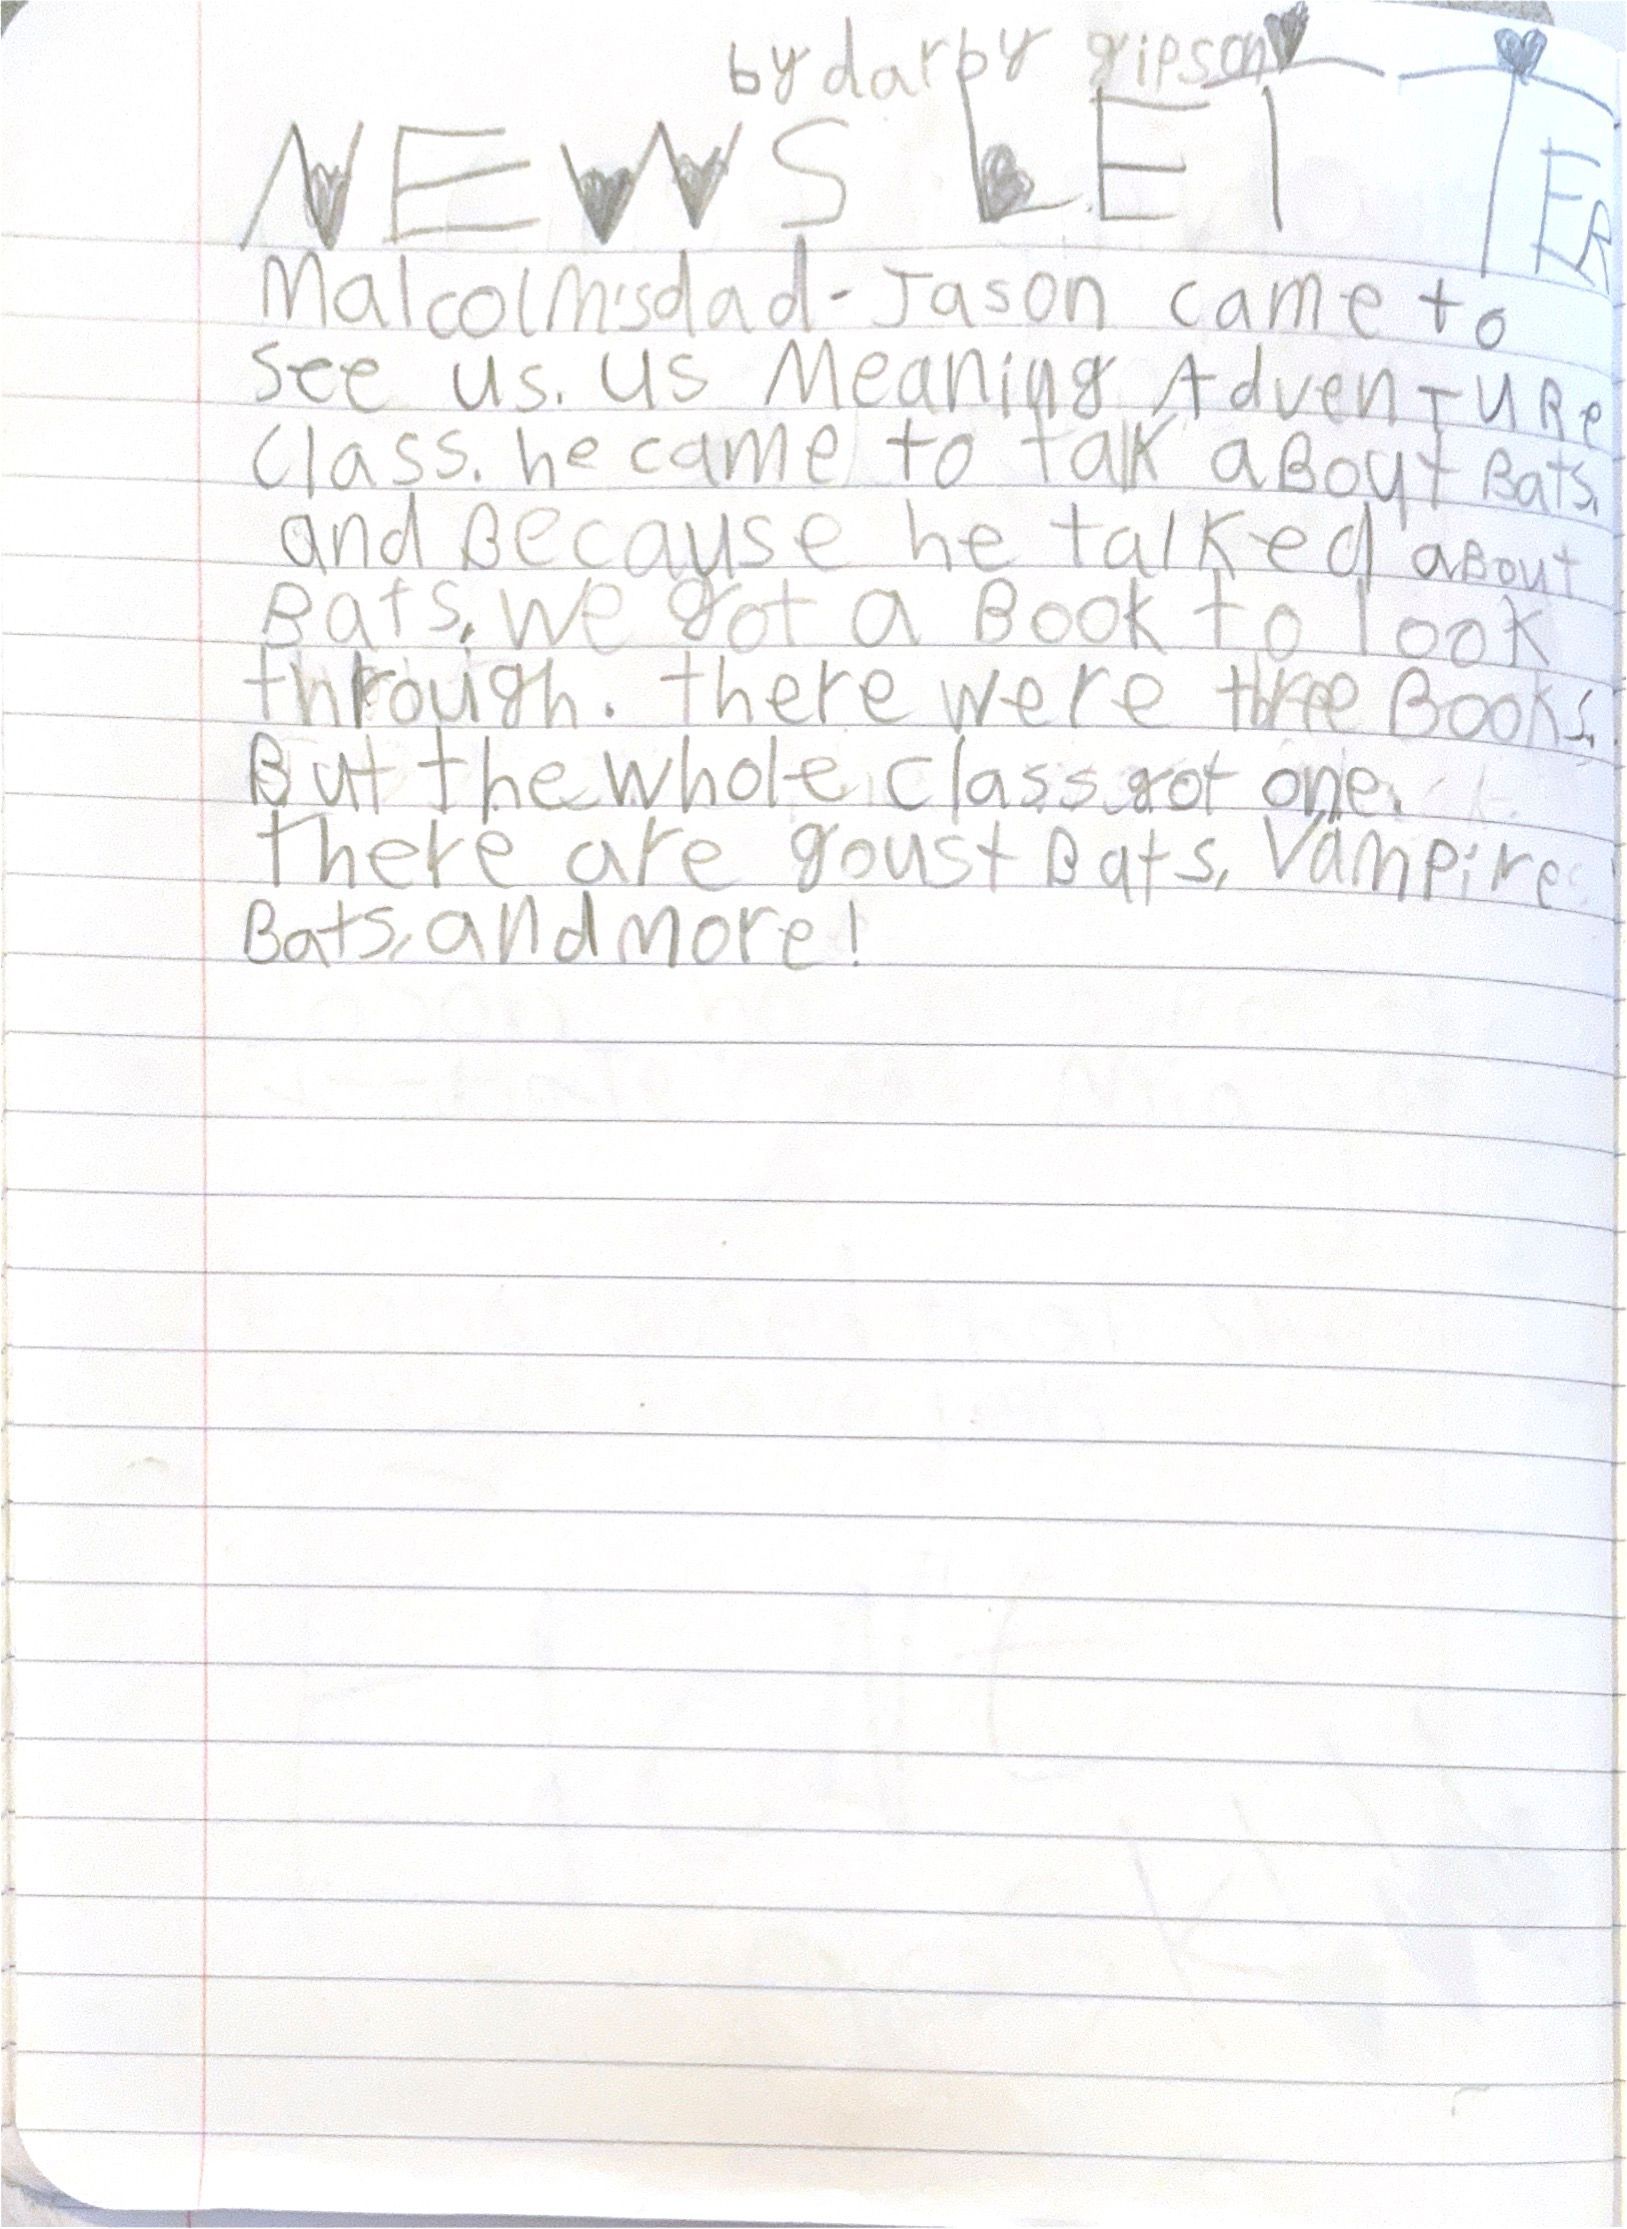 by darby gipson
NEWS LETTER
Malcolm'sdad-Jason came to
see us. us Meaning AdvenTURe
class. he came to talk aBout Bats.
and Because he talked aBout
Bats, we got a Book to look
through. there were three Books,
But the whole class got one.
there are goust Bats, Vampire
Bats, and more!